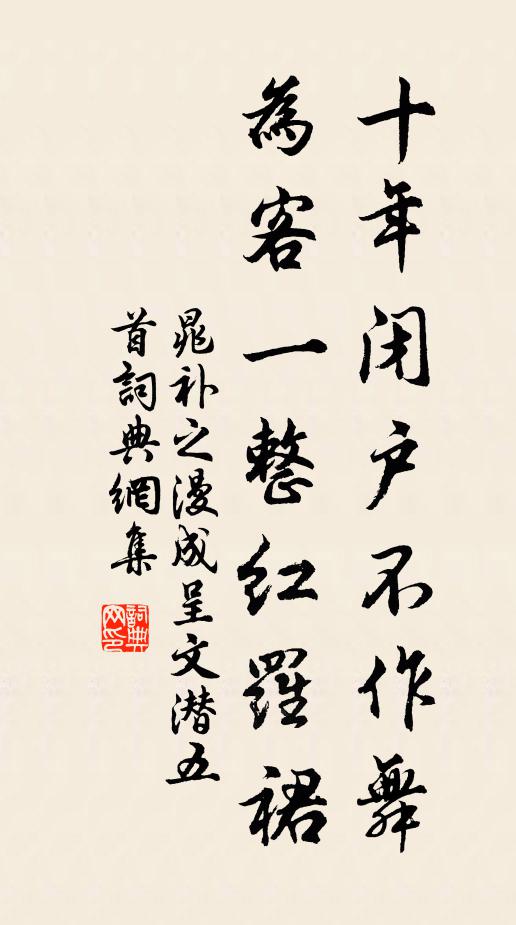 十年闭户不作舞
為客一整红羅裙
晁补之漫成呈文潜五
首詞典網集
詞典
网印